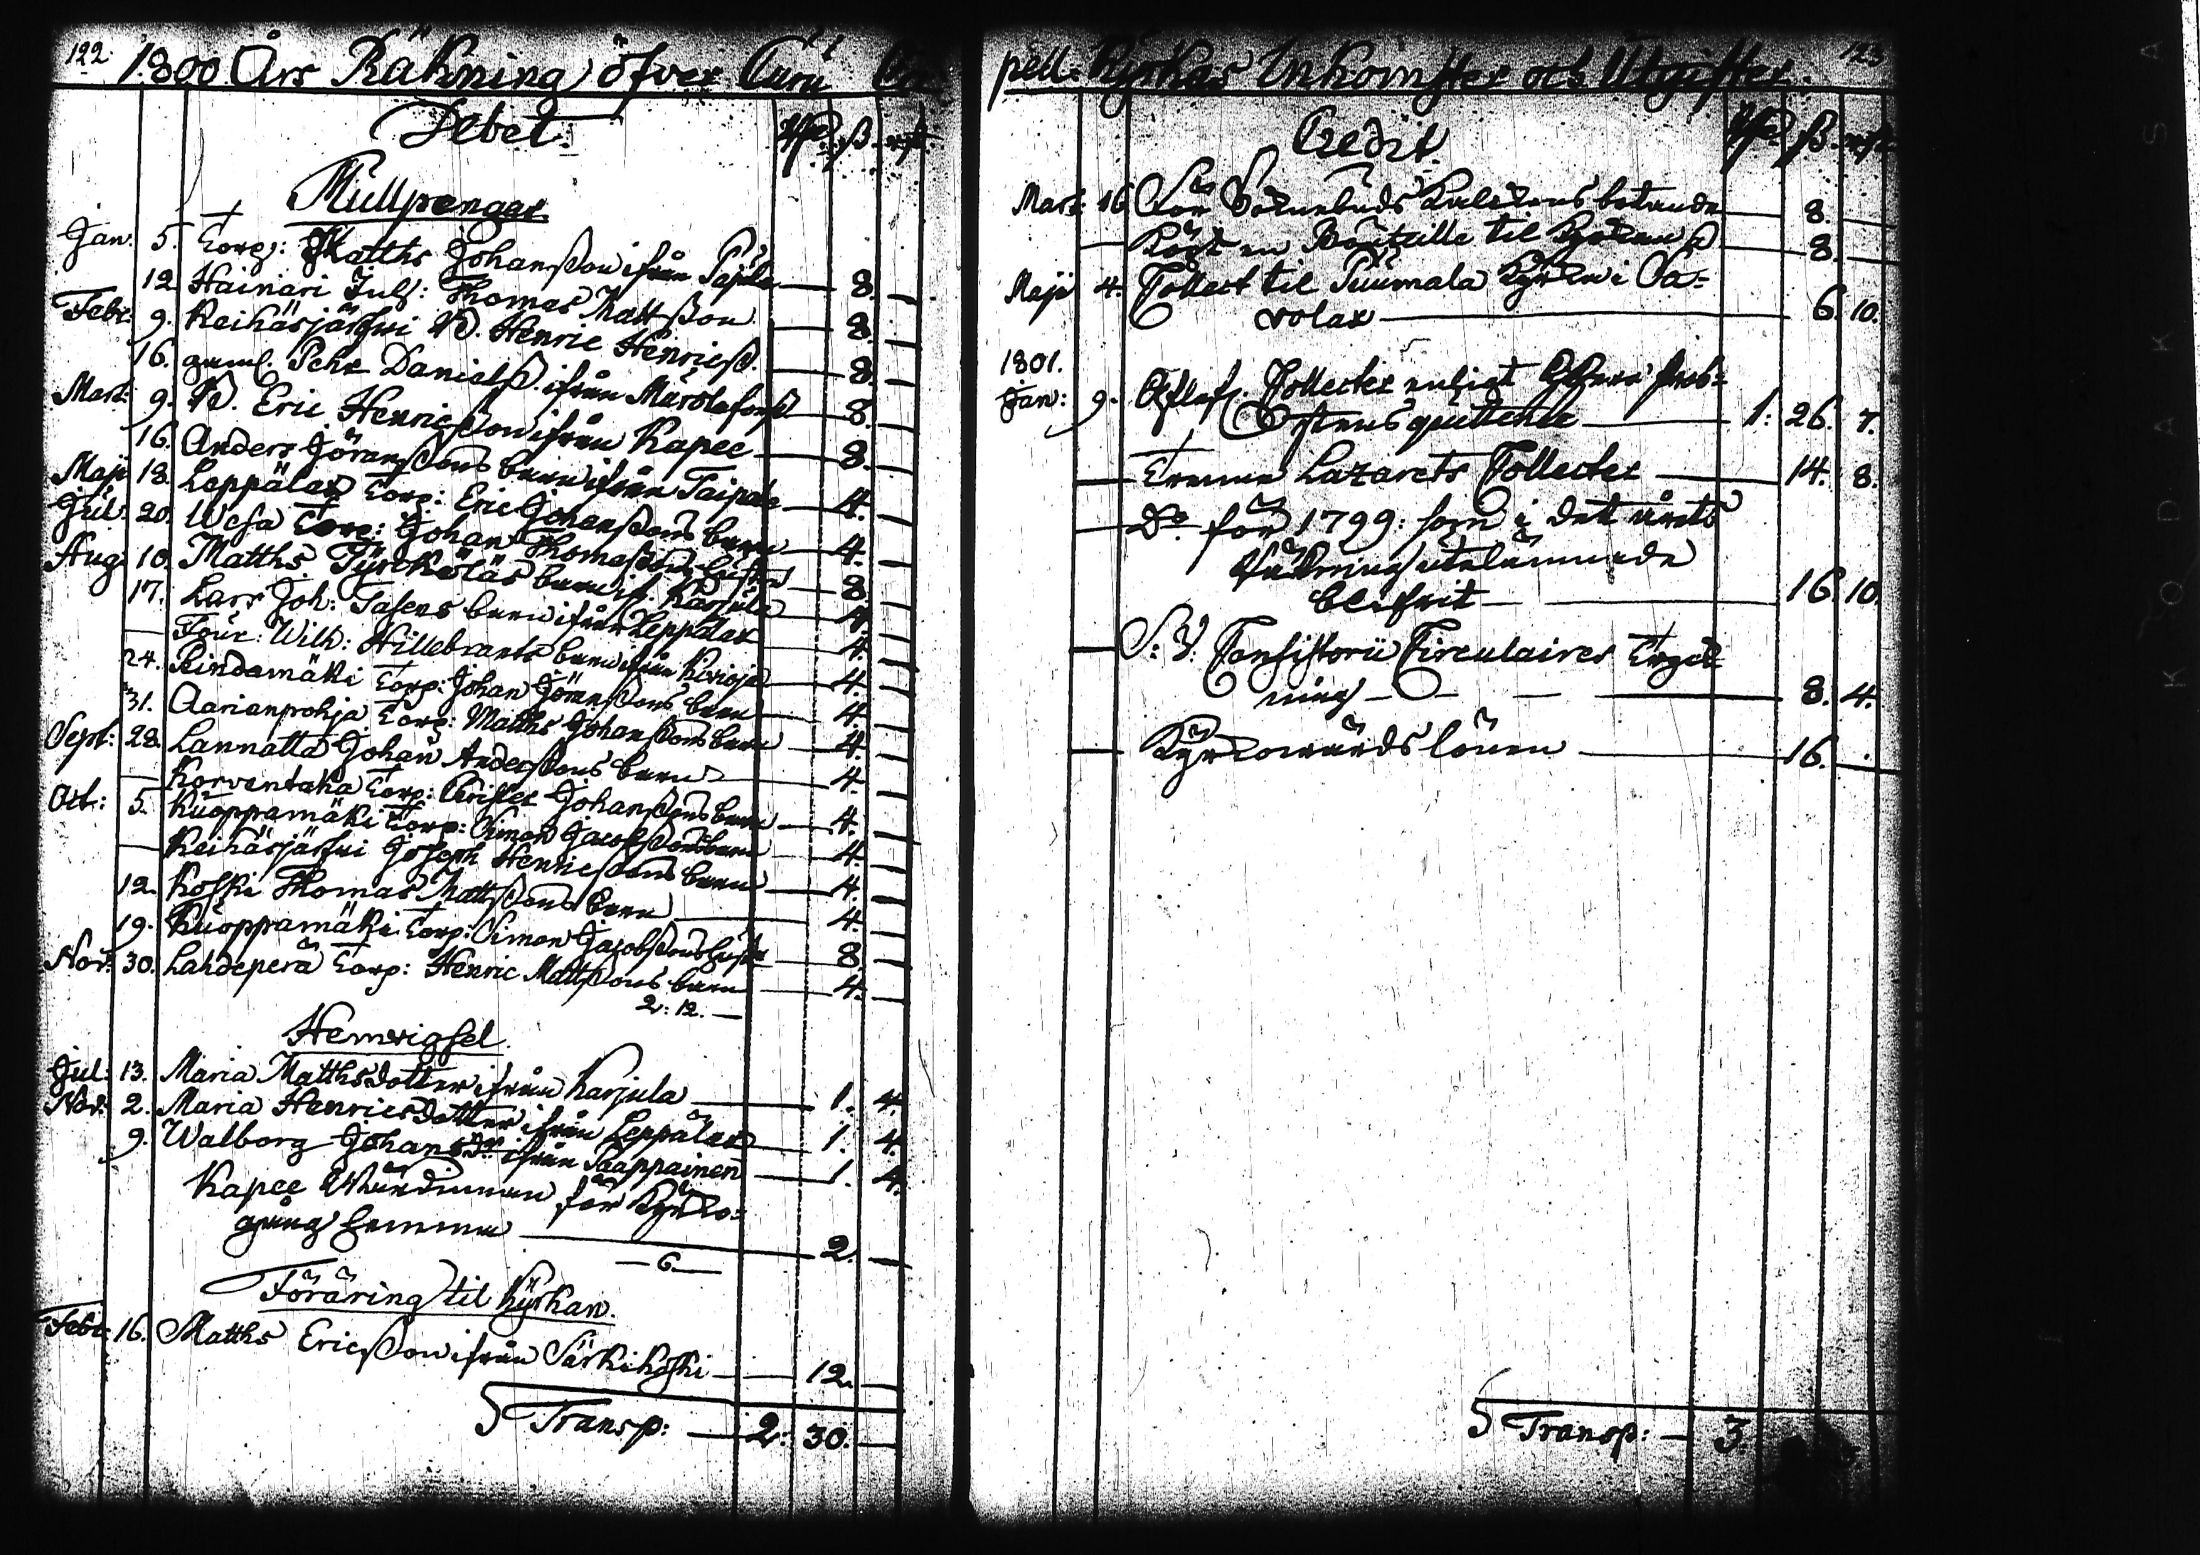 122.
1800 Års Räkning öfver Curu
Debet.
Rdr. ß. rst.
Mullpengar
Jan. 5. Torp: Matths Johanßon ifrån Päjla — 8. —
12. Hainari Inhs: Thomas Mattsßon — 8. —
Febr. 9. Keihäsjärfvi B. Henric Henricß. — 8. —
16. gaml. Pehr Danielß. ifrån — 8. —
Mart: 9. B. Eric Henricßon ifrån Kapee — 8. —
16. Anders Jöranßons barn ifrån Taipale — 4. —
Maji 18. Leppälax Torp: Eric Johanßons barn — 4. —
Jul. 20. Wesa Torp: Johan Thomaßons hustru — 8. —
Aug. 10. Matths barn if. Karjula — 4. —
17. Lars Joh: barn ifrån Leppälax — 4. —
— Four: Wilh: Hillebrants barn ifrån — 4. —
24. Rindamäki Torp: Johan Jöranßons barn — 4. —
31. Aarianpohja Torp: Matths Johanßons barn — 4. —
Sept: 28. Lannatta Johan Anderßons barn — 4. —
— Korventaka Torp: Christer Johanßons barn — 4. —
Oct: 5. Kuoppamäki Torp: Simon Jacobßons barn — 4. —
— Keihäsjärfvi Joseph Henricßons barn — 4. —
12. Koski Thomas Mattsßons barn — 4. —
19. Kuoppamäki Torp: Simon Jacobßons hustru — 8. —
Nov: 30. Lahdeperä Torp: Henric Mattßons barn — 4. —
2: 12. —
Hemvigsel.
Jul: 13. Maria Matthsdotter ifrån Karjula — 1. 4.
Nov: 2. Maria Henricsdotter ifrån Leppälax — 1. 4.
9. Walborg Johansdr ifrån Paappainen — 1. 4.
Kapee Wärdinnan för Kyrko-
gång hemma — 2. —
— 6. —
Föräring til Kyrkan.
Febr: 16. Matths Ericßon ifrån Särkikoski — 12. —
Transp: — 2: 30. —
pell: Kyrkas Inkomster och Utgifter. 123
Credit.
Rdr. ß. rst.
Mart: 16. För Sockenbuds Kalkens botande — 8. —
— Köpt en Bouteille til Kyrkan — 8. —
Maji 4. Collect til Puumala Kyrka i Sa-
volax — 6. 10.
1801.
Jan: 9. Collecter enligt Herr Prob-
stens quittence — 1: 26. 7.
— Lazarets Collecter — 14. 8.
— Do för 1799: som i det årets
Räkning utelämnade
blifvit — 16. 10.
— S: V: Consistorii Circulairer
ning — 8. 4.
— Kyrkowärdslönen — 16. .
Transp: — 3